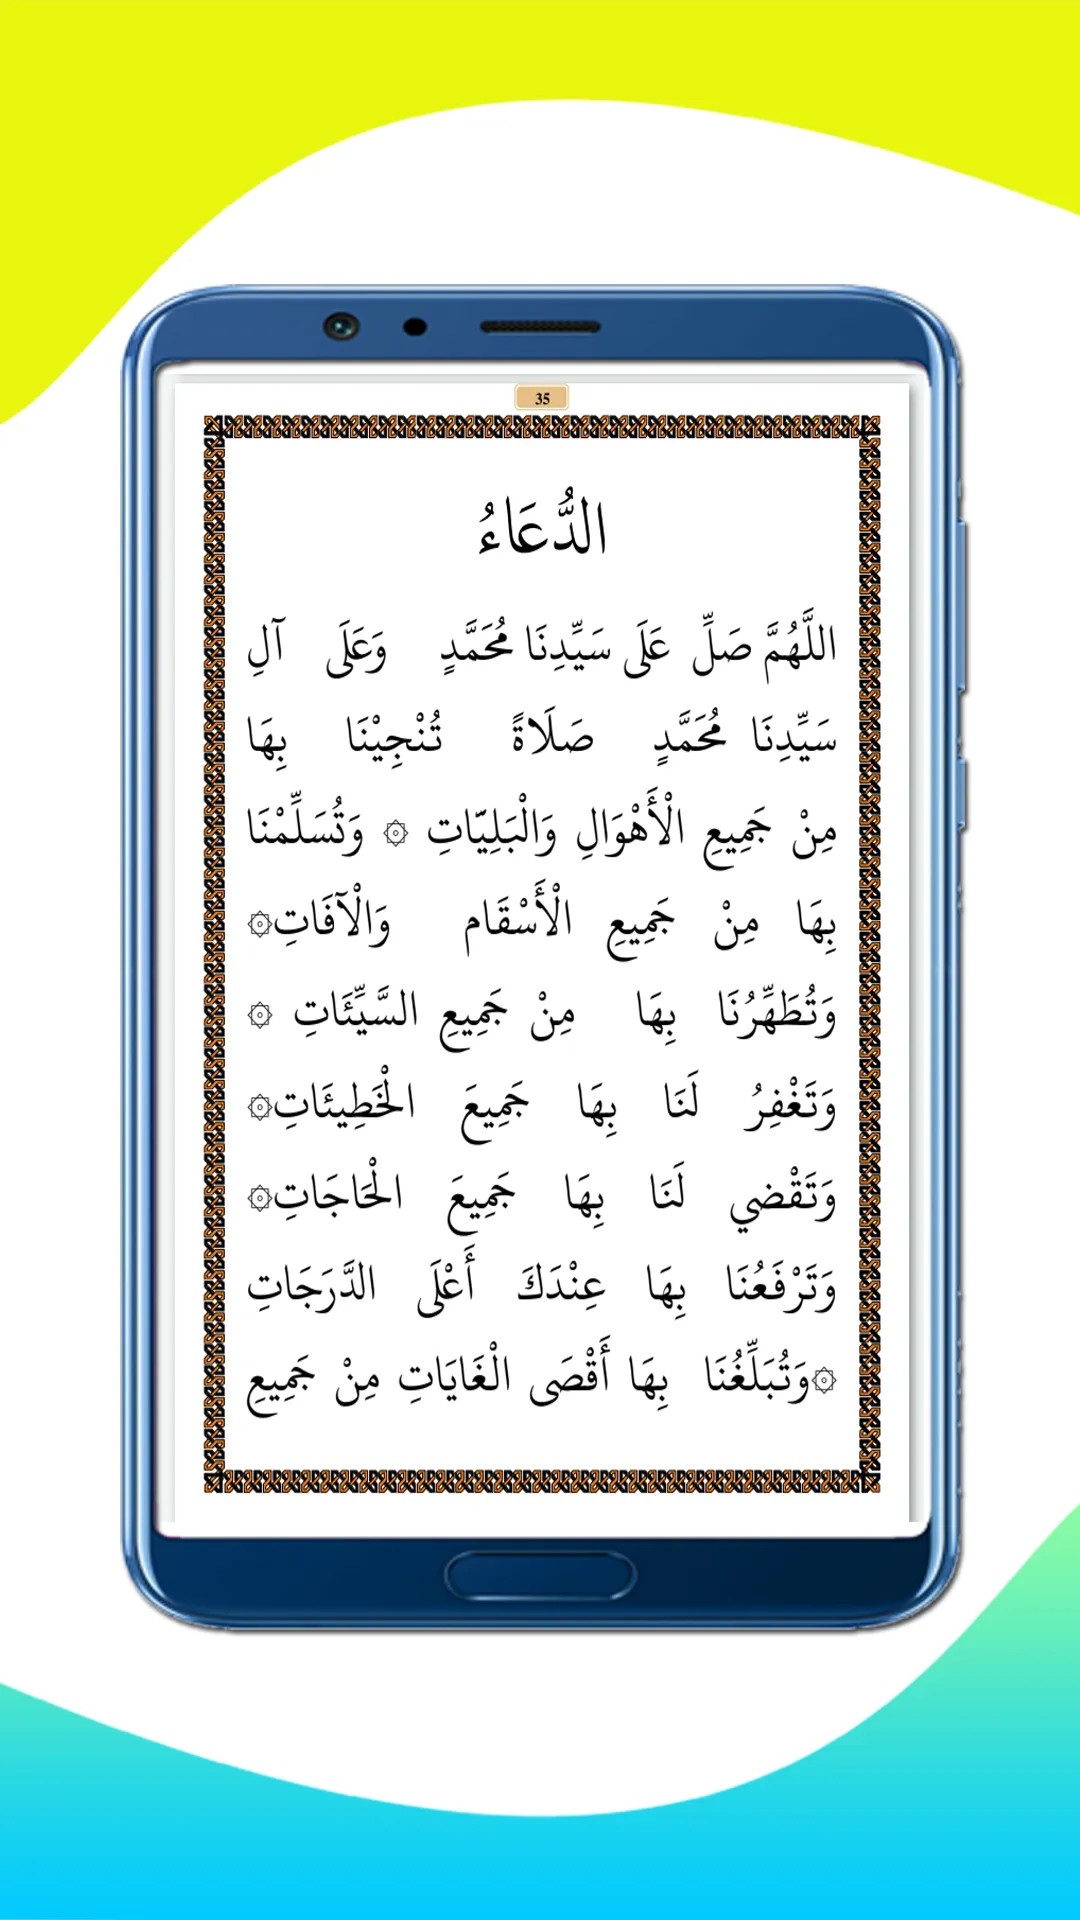 35
الدُّعَاءُ
اللَّهُمَّ صَلِّ عَلَى سَيِّدِنَا مُحَمَّدٍ وَعَلَى آلِ
سَيِّدِنَا مُحَمَّدٍ صَلَاةً تُنْجِيْنَا بِهَا
مِنْ جَمِيعِ الْأَهْوَالِ وَالْبَلِيّاتِ ۞ وَتُسَلِّمْنَا
بِهَا مِنْ جَمِيعِ الْأَسْقَام وَالْآفَاتِ۞
وَتُطَهِّرُنَا بِهَا مِنْ جَمِيعِ السَّيِّئَاتِ ۞
وَتَغْفِرُ لَنَا بِهَا جَمِيعَ الْخَطِيئَاتِ۞
وَتَقْضِي لَنَا بِهَا جَمِيعَ الْحَاجَاتِ۞
وَتَرْفَعُنَا بِهَا عِنْدَكَ أَعْلَى الدَّرَجَاتِ
۞وَتُبَلِّغُنَا بِهَا أَقْصَى الْغَايَاتِ مِنْ جَمِيعِ